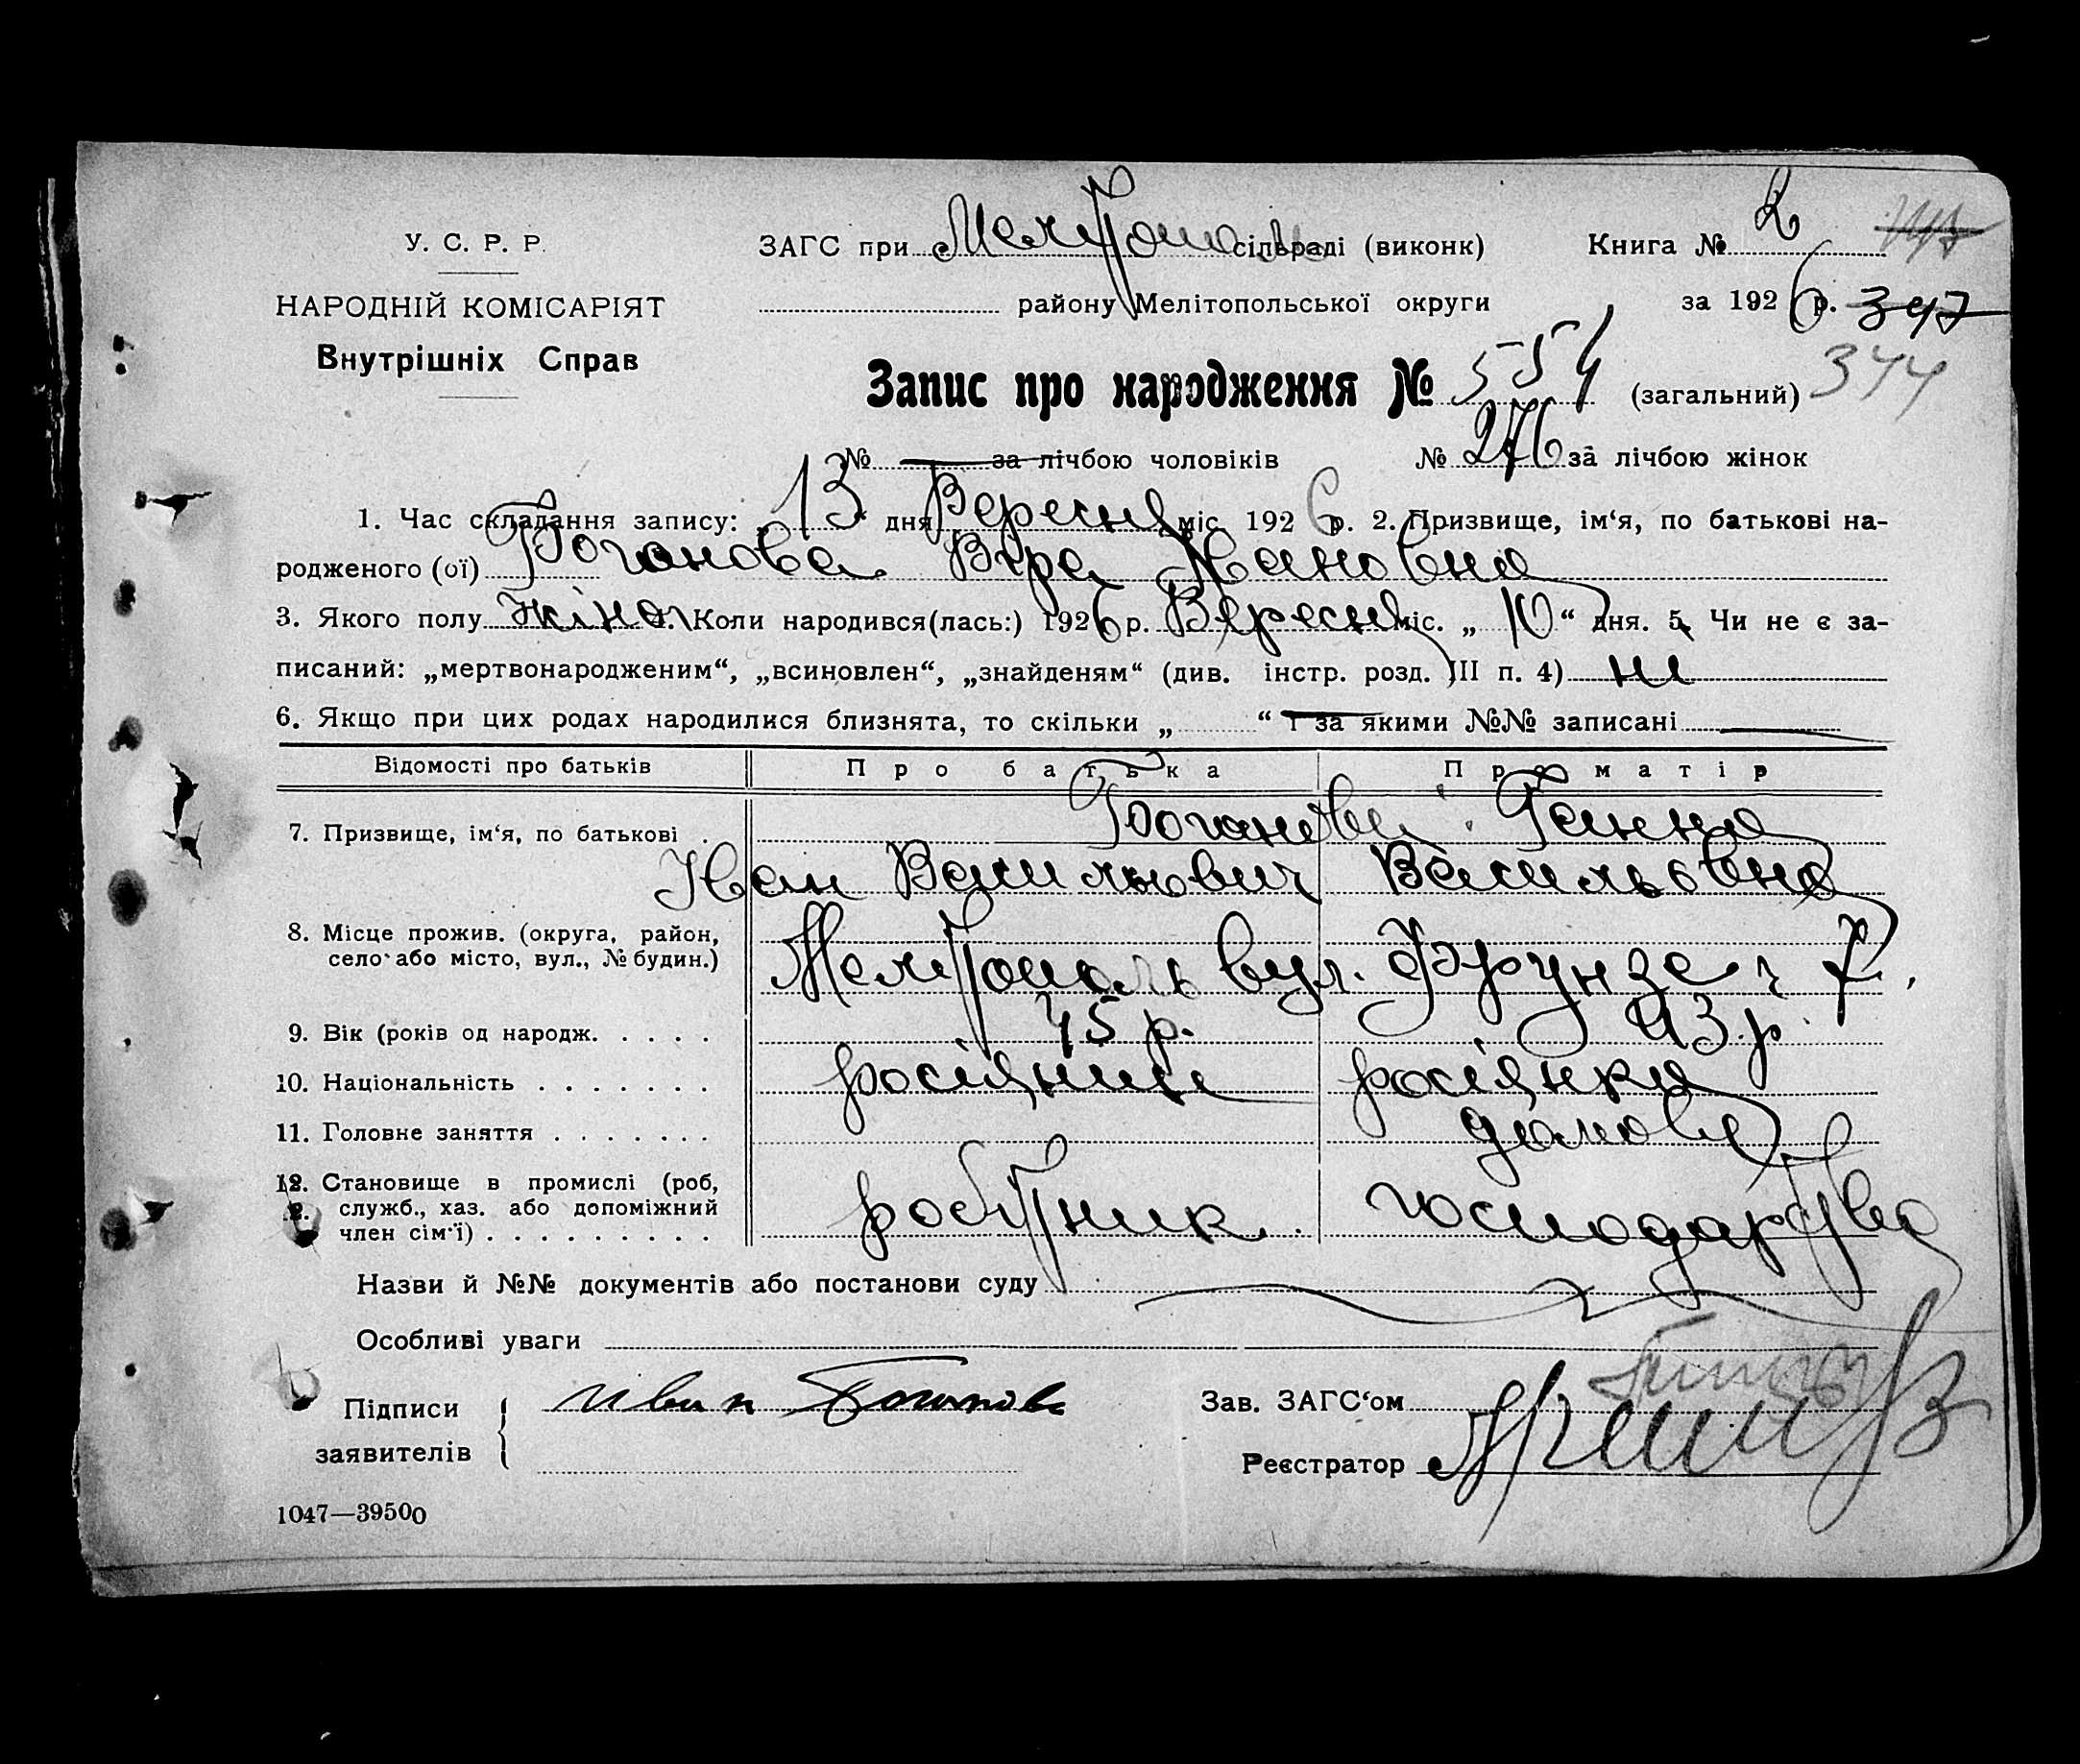 У. С. Р. Р.
НАРОДНІЙ КОМІСАРІЯТ
Внутрішніх Справ
ЗАГС при Мелітополь сільраді (виконк)
району Мелітопольської округи
Книга № 2
за 1926 р. 347
344
Запис про народження № 554 (загальний)
№ за лічбою чоловіків № 276 за лічбою жінок
1. Час складання запису: „13“ дня Вересня міс. 1926 р. 2. Призвище, ім‘я, по батькові на-
родженого (ої) Боганова Віра Івановна
3. Якого полу жіноч 4. Коли народився(лась:) 1926 р. Вересня міс. „10“ дня. 5. Чи не є за-
писаний: „мертвонародженим“, „всиновлен“, „знайденям“ (див. інстр. розд. III п. 4) ні
6. Якщо при цих родах народилися близнята, то скільки „ “ і за якими №№ записані
Відомості про батьків Про батька Про матір
7. Призвище, ім‘я, по батькові . Боганови Ганна
Іван Васильович Васильовна
8. Місце прожив. (округа, район,
село або місто, вул., № будин.) Мелітополь вул. Фрунзе ч 7.
9. Вік (років од народж. . . . . 45 р. 43 р.
10. Національність . . . . . . . росіянин росіянка
11. Головне заняття . . . . . . . домове
12. Становище в промислі (роб,
служб., хаз. або допоміжний
член сім‘ї) . . . . . . . . . робітник. господарство
Назви й №№ документів або постанови суду
Особливі уваги
Підписи
заявителів
Иван Боганов
Зав. ЗАГС‘ом
Реєстратор
1047—39500